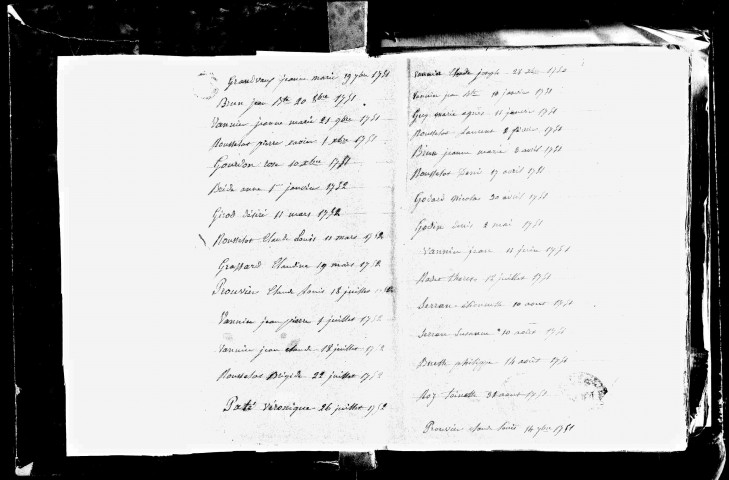 Grandvaux jeanne marie 19 7bre 1751
Brun jean Bte 20 8bre 1751
Vannier jeanne marie 21 9bre 1751
Rousselot pierre xavier 1 xbre 1751
Gourdon rose 10 xbre 1751
Bride anne 1er janvier 1752
Girod désiré 11 mars 1752
Rousselot Claude Louis 11 mars 1752
Grossard Claudine 19 mars 1752
Prouvier Claude Louis 18 juillet 1752
Vannier jean pierre 1 juillet 1752
Vannier jean Claude 18 juillet 1752
Rousselot Brigide 22 juillet 1752
Paté Véronique 26 juillet 1752
Vannier Claude joseph 28 1750
Vannier jean Bte 10 janvier 1751
Guy marie agnès 11 janvier 1751
Rousselot Laurent 2 février 1751
Brun jeanne marie 8 avril 1751
Rousselot Denis 17 avril 1751
Nicolas 30 avril 1751
Godin Louis 2 mai 1751
Vannier jeanne 11 juin 1751
Therese 12 juillet 1751
10 aout 1751
Suzanne 10 août 1751
philippe 14 août 1751
31 aout 1751
Prouvier claude Louis 14 7bre 1751